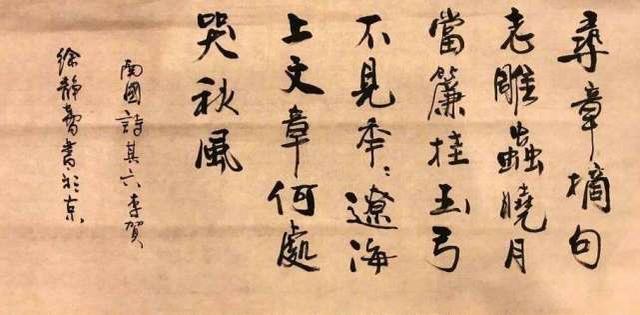 尋章摘句
老雕蟲曉月
當簾挂玉弓
不見年〻遼海
上文章何處
哭秋風
南國詩其六李賀
徐靜書於京